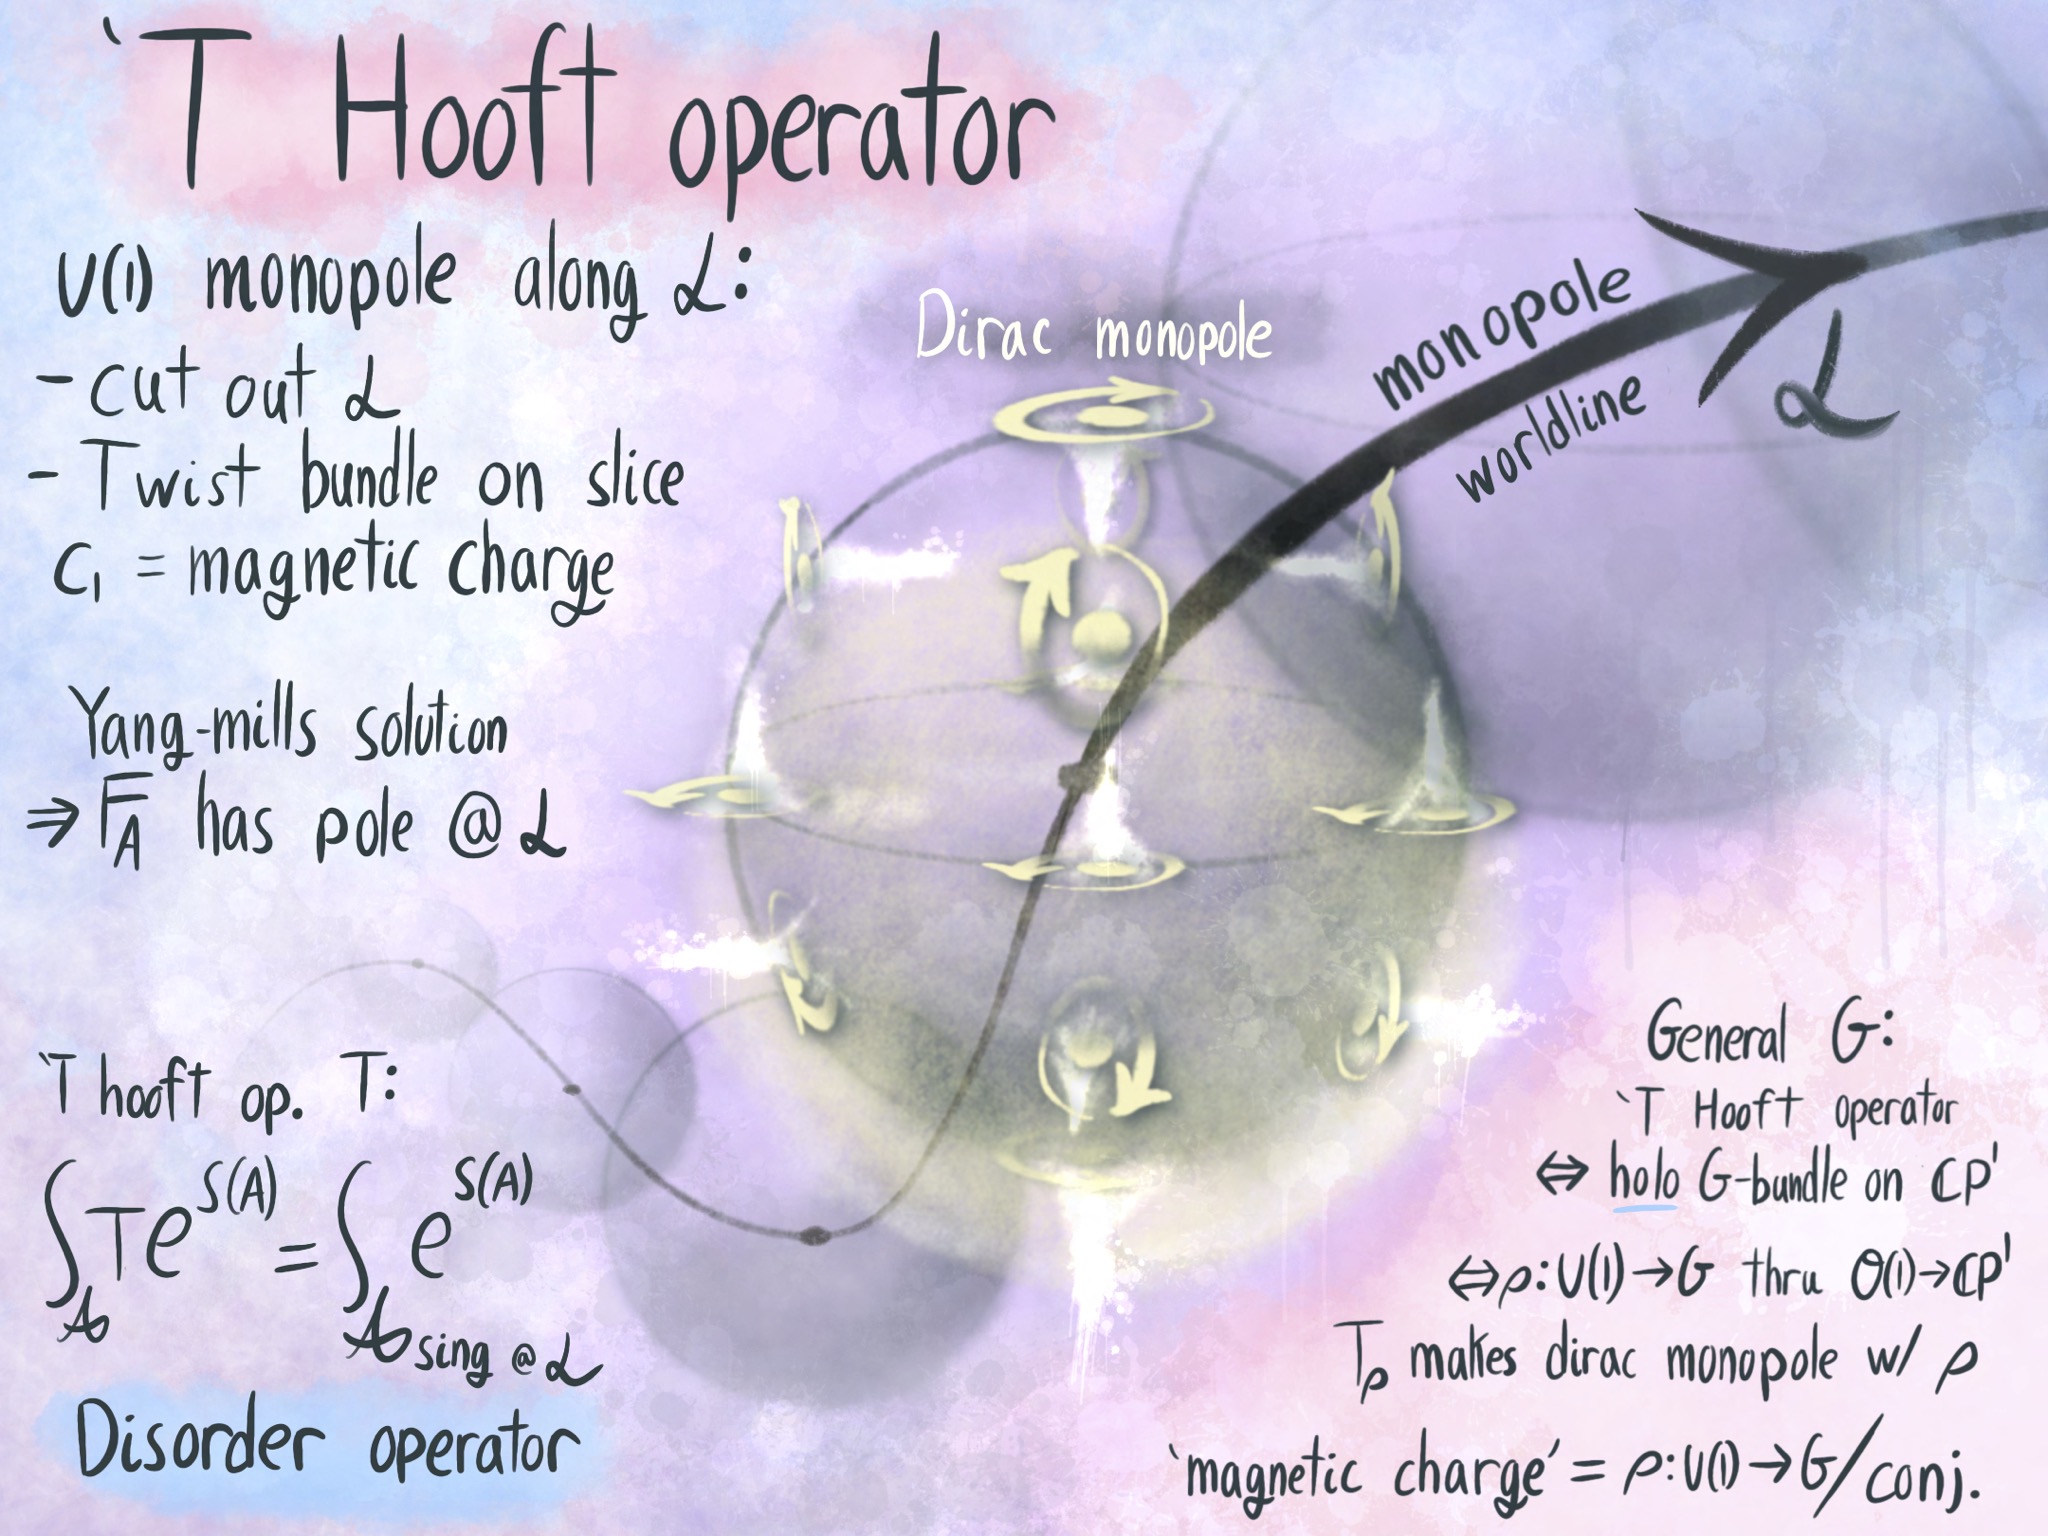 `T Hooft operator
U(1) monopole along L:
- cut out L
- Twist bundle on slice
C₁ = magnetic charge
Yang-mills solution
⇒ F_A has pole @ L
Dirac monopole
monopole
worldline
L
`T hooft op. T:
∫_A T e^S(A) = ∫_A sing @ L e^S(A)
Disorder operator
General G:
`T Hooft operator
⇔ holo G-bundle on CP¹
⇔ ρ: U(1) → G thru O(1) → CP¹
T_ρ makes dirac monopole w/ ρ
`magnetic charge' = ρ: U(1) → G/conj.